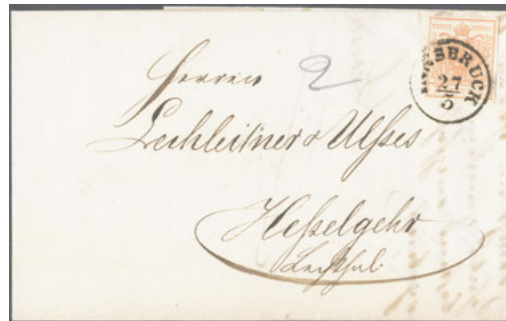 INNSBRUCK
27
5
Herren
2
Lechleitner & Ulßes
Heßelgehr
Lechthal